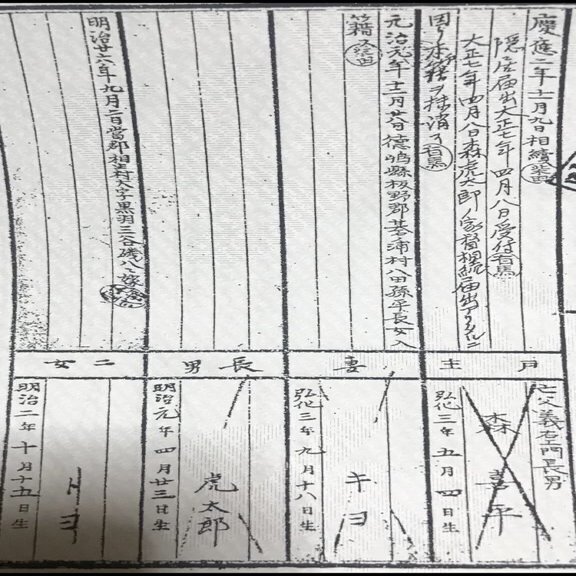 慶應二年十一月九日相續
隠居届出大正七年四月八日受付
大正七年四月八日森虎太郎ノ家督相続届出アリタルニ
因リ本籍ヲ抹消ス
戸主
亡父義左衛門長男
森喜平
弘化三年五月四日生
元治元年十二月廿八日徳嶋縣板野郡碁浦村八田孫平長女入
籍
妻
キヨ
弘化三年九月十八日生
長男
虎太郎
明治元年四月廿三日生
明治廿六年九月二日當郡相生村大字黒羽三谷磯八ニ嫁
二女
トヨ
明治二年十月十五日生